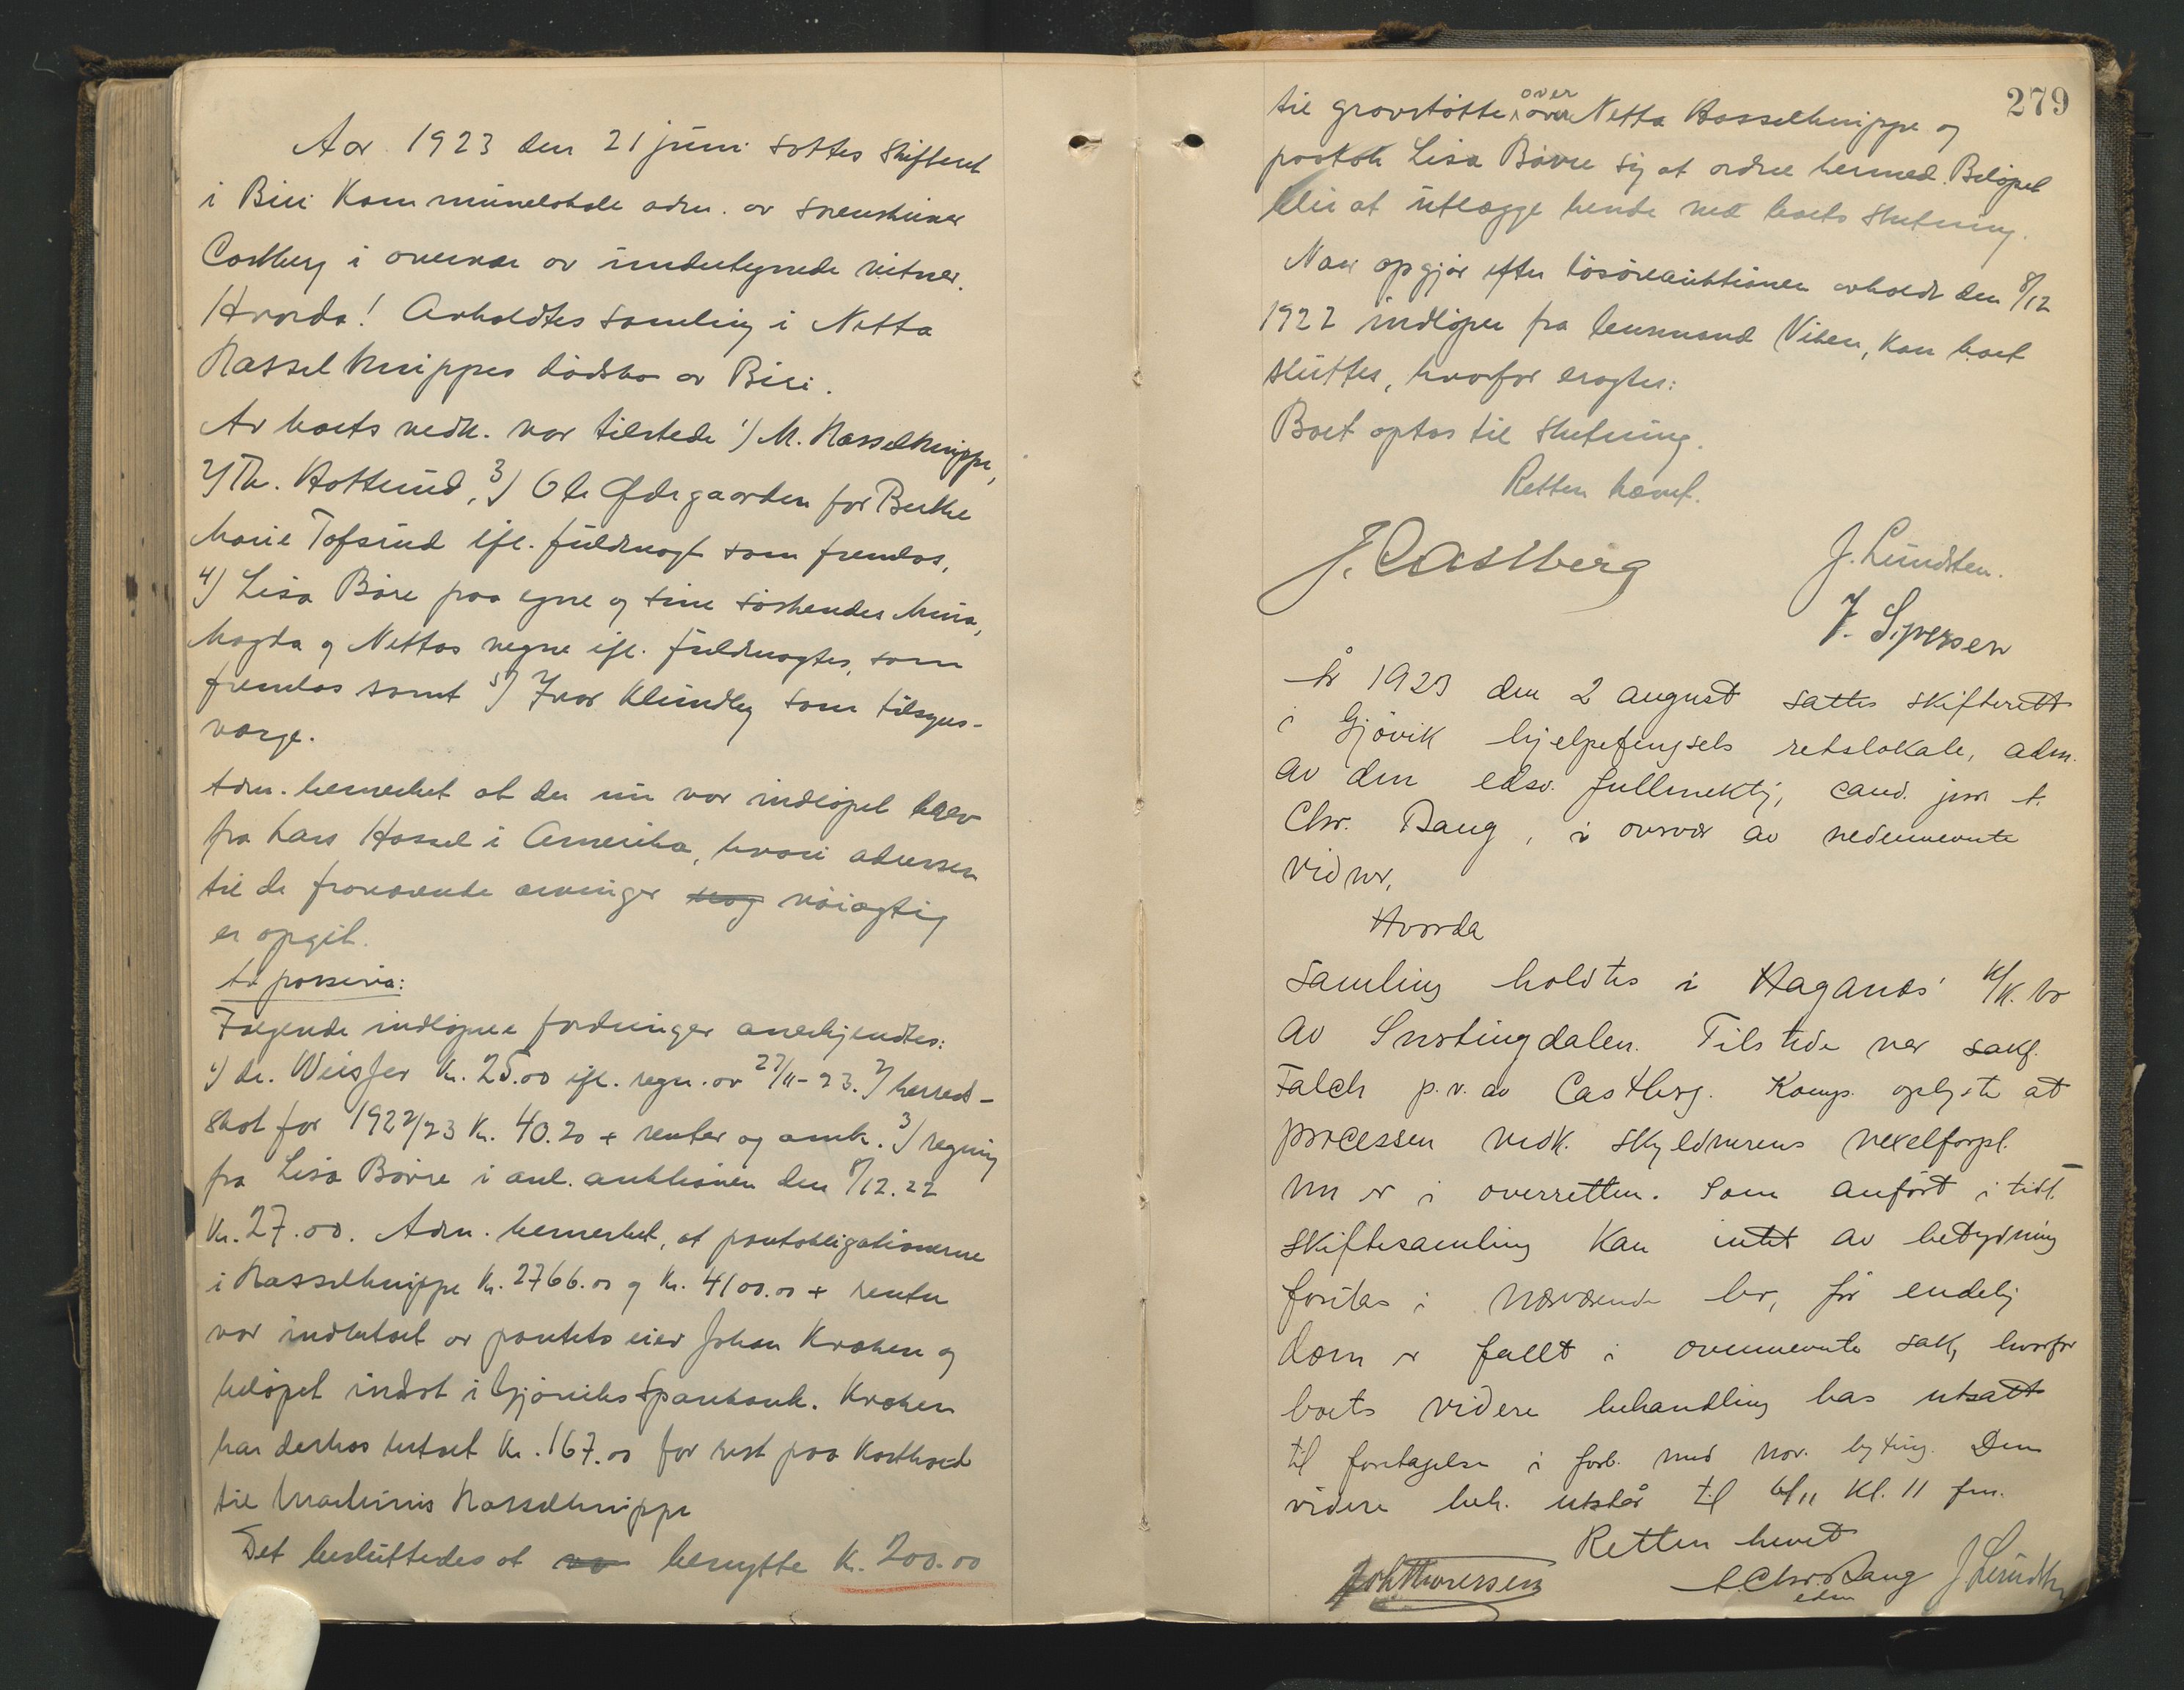 Aar 1923 den 21 juni sattes skifteret
i Biri Kommunelokale adm. av sorenskriver
Castberg i overvær av undertegnede vitner.
Hvorda! Avholdtes samling i Netta
Hasselknippes dødsbo av Biri.
Av boets vedk. var tilstede 1) M. Hasselknippe,
2) Th. Hottund, 3) Ole Ødegaarden for Berthe
Marie Tofsrud ifl. fuldmagt som fremlas,
4) Lisa Børe paa egne og sine søskendes Mina,
Magda og Nettas vegne ifl. fuldmagter, som
fremlas samt 5) Ivar Klundby som tilsyns-
værge.
Adm. bemerket at der nu var indløpet brev
fra Lars Hassel i Amerika, hvori adressen
til de fraværende arvinger nøiagtig
er opgit.
Ad passiva:
Følgende indløpne fordringer anerkjendtes:
1) dr. Weisfer Kr. 25.00 ifl. regn. av 27/11-23. 2) herred-
skat for 1922/23 Kr. 40.20 + renter og omk. 3) regning
fra Lisa Bøvre i anl. auktionen den 8/12.22
Kr. 27.00. Adm. bemerket, at pantobligationerne
i Hasselknippe Kr. 2766.00 og Kr. 4100.00 + renter
var indbetalt av pantets eier Johan Kraken og
beløpet indsat i Gjøviks Sparebank. Kraken
har derhos betalt Kr. 167.00 for rest paa Kosthold
til Mathinis Hasselknippe
Det besluttedes at benytte Kr. 200.00
279
til gravstøtte over Netta Hasselknippe og
paatok Lisa Bøvre sig at ordne hermed. Beløpet
blir at utlægge hende ved boets slutning.
Naar opgjør efter løsøreauktionen avholdt den 8/12
1922 indløper fra lensmand Viken, kan boet
sluttes, hvorfor eragtes:
Boet optas til slutning.
Retten hævet.
J. Castberg
J. Lundsten.
J. Siversen
År 1923 den 2 august sattes skifterett
i Gjøvik hjelpefengsels retslokale, adm.
av den edsv. fullmektig, cand. jur. A.
Chr. Daug, i overvær av nedennevnte
vidner.
Hvorda
samling holdtes i Haganæs' k/k. bo
av Snertingdalen. Tilstede var sakf.
Falch p.v. av Castberg. Komp. oplyste at
processen vedk. skyldnerens vexelforpl.
nu er i overretten. Som anført i tidl.
skiftesamling kan intet av betydning
foretas i nærværende bo, før endelig
dom er fallt i ovennevnte sak, hvorfor
boets videre behandling bas utsatt
til foretagelse i forb. med nov. byting. Den
videre beh. utstår til 6/11 Kl. 11 fm.
Retten hevet
Joh Thoresen
A. Chr. Daug
edsv
J Lundsten